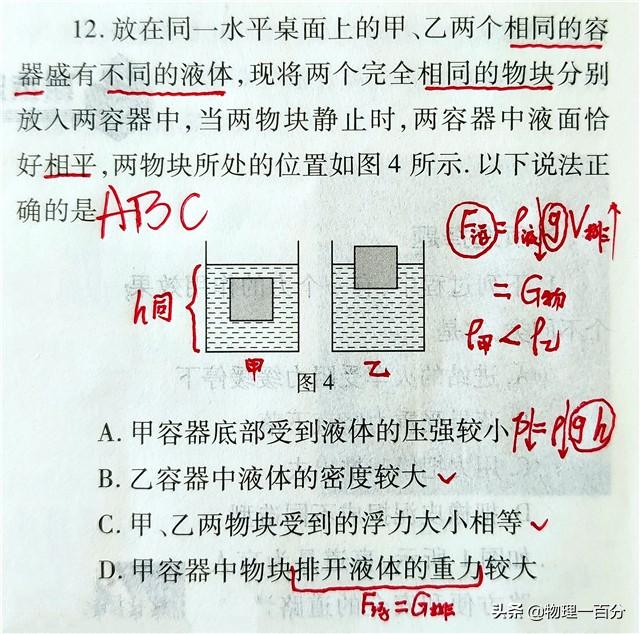 12. 放在同一水平桌面上的甲、乙两个相同的容
器盛有不同的液体,现将两个完全相同的物块分别
放入两容器中,当两物块静止时,两容器中液面恰
好相平,两物块所处的位置如图4所示. 以下说法正
确的是 ABC
F浮 = ρ液 g V排
= G物
ρ甲 < ρ乙
h同
甲 乙
图4
A. 甲容器底部受到液体的压强较小 p = ρ g h
B. 乙容器中液体的密度较大 ✓
C. 甲、乙两物块受到的浮力大小相等 ✓
D. 甲容器中物块排开液体的重力较大
F浮 = G排
头条 @物理一百分